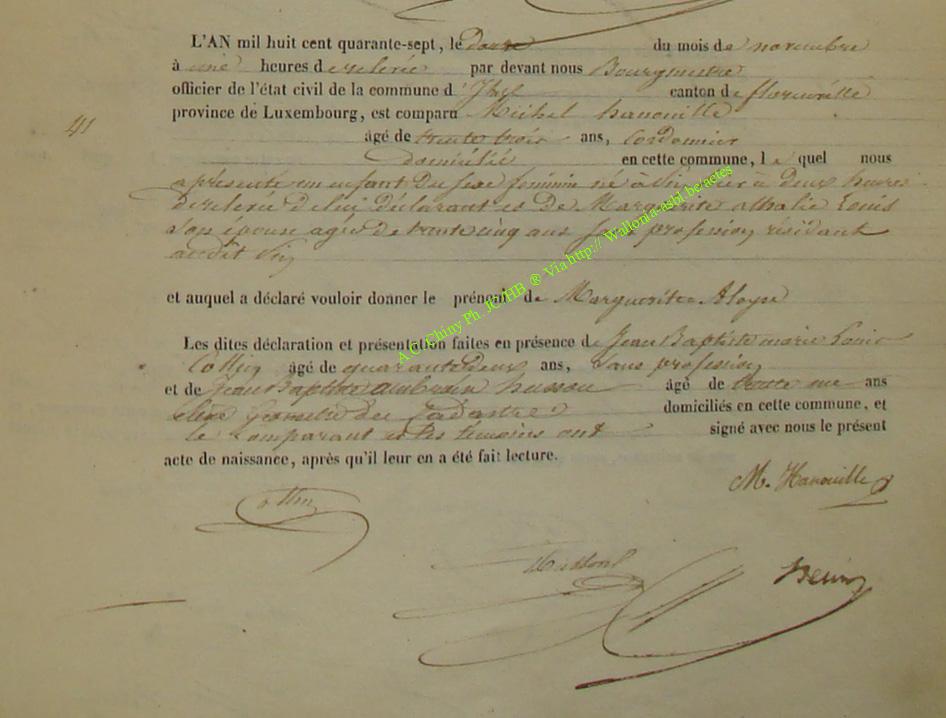 L'AN mil huit cent quarante-sept, le douze du mois de novembre
à une heures de relevée par devant nous Bourgmestre
officier de l'état civil de la commune d' canton de florenville
province de Luxembourg, est comparu Michel hanouille
41
âgé de trente trois ans, Cordonnier
domicilié en cette commune, le quel nous
a présenté un enfant du sexe féminin né à hier à deux heures
de relevée de lui déclarant et de Marguerite Louis
son épouse agée de trente cinq ans sans profession résidant
audit
et auquel a déclaré vouloir donner le prénom de Marguerite Aloyse
Les dites déclaration et présentation faites en présence de Jean Baptiste marie Louis
Collin âgé de quarante deux ans, sans profession
et de Jean Baptiste husson âgé de trente un ans
du Cadastre domiciliés en cette commune, et
le Comparant et les témoins ont signé avec nous le présent
acte de naissance, après qu'il leur en a été fait lecture.
M. Hanouille
Collin
Husson
A.G. Chiny Ph. JC.HB ® Via http:// Wallonia-asbl be/actes